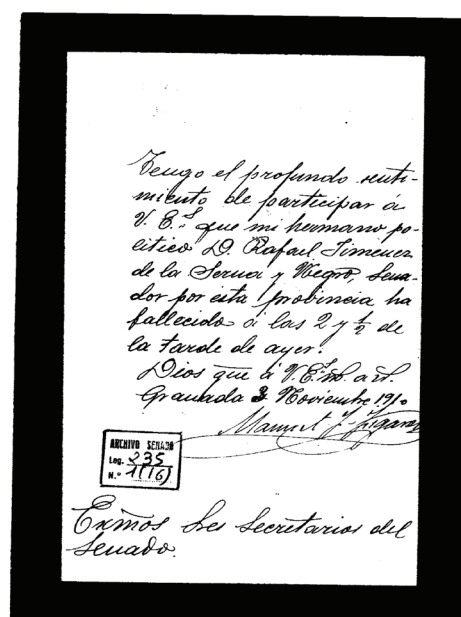 Tengo el profundo senti-
miento de participar a
V. E.s que mi hermano po-
litico D. Rafael Jimenez
de la Serna y Negro, Sena-
dor por esta provincia ha
fallecido á las 2 y ½ de
la tarde de ayer.
Dios gue á V. E.s m. a s.
Granada 3 Noviembre 1910
Manuel
ARCHIVO SENADO
Leg. 235
N.º 1(16)
Exmos Sres Secretarios del
Senado.